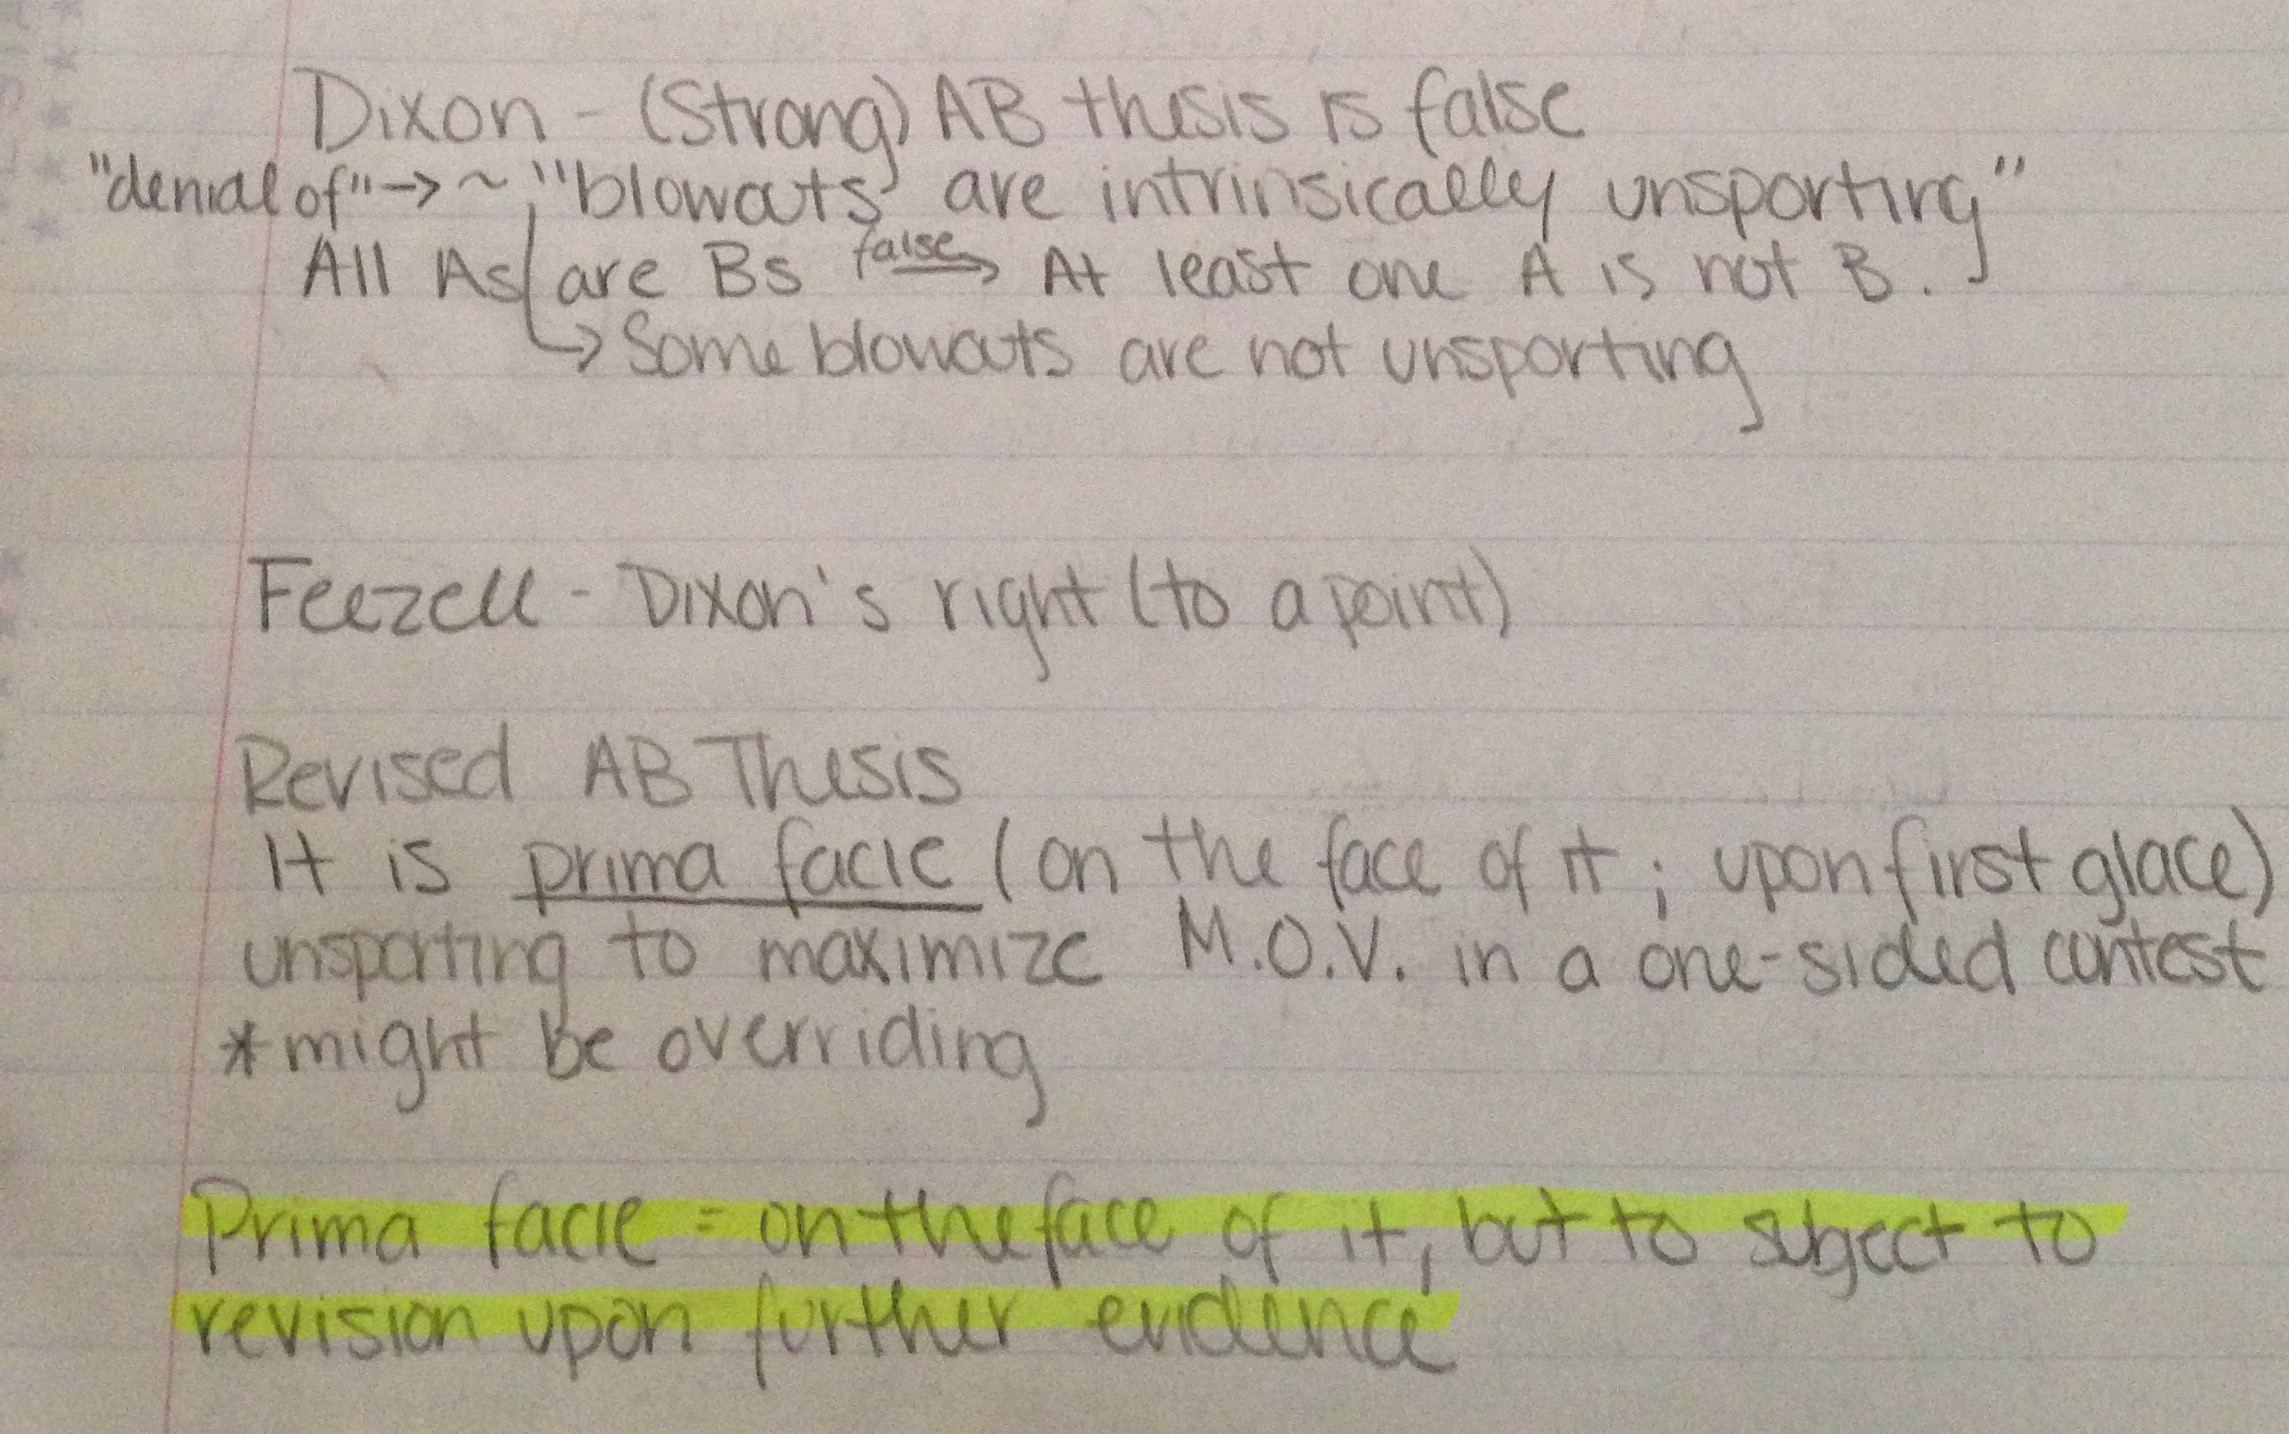 Dixon - (Strong) AB thesis is false
"denial of" → ~ "blowouts are intrinsically unsporting"
All As are Bs false → At least one A is not B.
→ Some blowouts are not unsporting
Feezell - Dixon's right (to a point)
Revised AB Thesis
It is prima facie (on the face of it; upon first glace)
unsporting to maximize M.O.V. in a one-sided contest
*might be overriding
Prima facie = on the face of it, but to subject to
revision upon further evidence